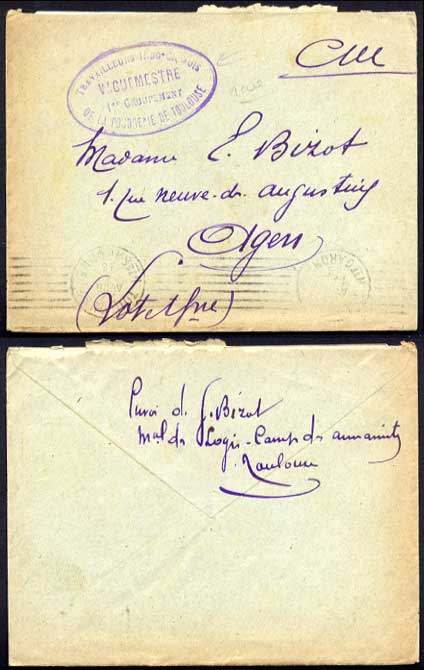 CM
TRAVAILLEURS INDO-CHINOIS
VAGUEMESTRE
1er GROUPEMENT
DE LA POUDRERIE DE TOULOUSE
Madame E. Bizot
1. rue neuve-des augustins
Agen
(Lot et Gne)
Envoi de J. Bizot
Mal des Logis - Camp des annamites
Toulouse